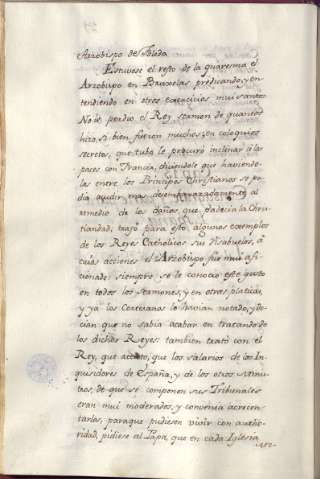 Arzobispo de Toledo
Estuvose el resto de la quaresma el
Arzobispo en Bruxelas, predicando, y en
tendiendo en otros exercicios mui santos
No le perdio el Rey sermon de quantos
hizo, si bien fueron muchos, en coloquios
secretos, que tubo le procuró inclinar á las
paces con Francia, diciendole que haviendo
las entre los Principes Christianos se po
dia acudir mas desembarazadamente al
remedio de los daños, que padecia la Chris
tiandad, trajo para esto algunos exemplos
de los Reyes Catholicos sus Visabuelos, á
cuias acciones el Arzobispo fue mui afi
cionado: siempre se le conocio este gusto
en todos los sermones, y en otras platicas,
y ya los Cortesanos lo havian notado, y de
cian que no sabia acabar en tratando de
los dichos Reyes: tambien trató con el
Rey, que acepto, que los salarios de los In
quisidores de España, y de los otros
de que se componen sus Tribunales
eran mui moderados, y convenia acrecen
tarlos, paraque pudiesen vivir con autho
ridad, pidiese al Papa, que en cada Iglesia